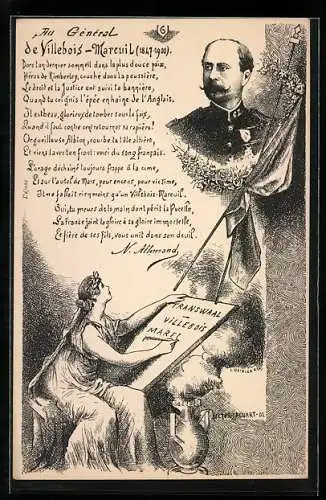 Au Général
(6)
de Villebois-Mareuil (1847-1900).
Dors ton dernier sommeil dans la plus douce paix,
Héros de Kimberley, couché dans la poussière,
Le droit et la Justice ont suivi ta bannière,
Quand tu ceignis l'épée en haine de l'Anglais.
Il est beau, glorieux de tomber sous le faix,
Quand il faut contre cent retourner sa rapière!
Orgueilleuse Albion, courbe ta tête altière,
Et viens laver ton front: voici du sang français.
L'orage déchaîné toujours frappe à la cime,
Et sur l'autel de Mars, pour encor, pour victime,
Il ne fallait rien moins qu'un Villebois-Mareuil.
Oui, tu meurs de la main dont périt la Pucelle,
La France joint ta gloire à sa gloire immortelle,
Et fière de ses fils, vous unit dans son deuil.
N. Allemand
TRANSWAAL
VILLEBOIS
MAREL